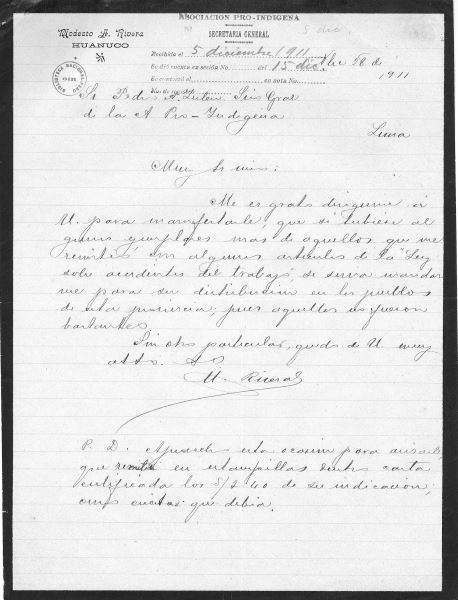 ASOCIACION PRO-INDIGENA
SECRETARIA GENERAL
5 dic
Modesto A. Rivera
HUANUCO
Recibida el 5 diciembre 1911
Se dió cuenta en sesión No. del 15 dic.
Se contestó el en nota No.
1911
Sr Pedro S. Zulen Srio Gral
de la A Pro-Indigena
Lima
Muy Sr mio:
Me es grato dirigirme á
U. para manifestarle, que si tubiese al
gunos ejemplares mas de aquellos que me
remitió, con algunos articulos de la "Ley
sobre accidentes del trabajo" se sirva mandar
me para su distribucion en los pueblos
de esta provincia; pues aquellos no fueron
bastantes
Sin otro particular, quedo de U. muy
atto. SS
M. Rivera
P. D. Aprovecho esta ocasion para avisarle,
que remití en estampillas dentro carta
certificada los S/ 2 40 de su indicacion,
cuyas cuotas que debia.